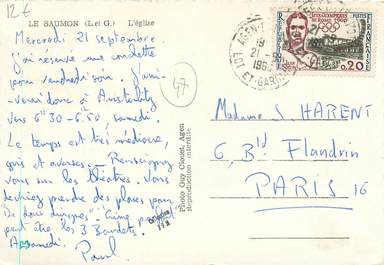 12€
LE SAUMON (L.et G.) L'église
Mercredi 21 septembre
j'ai réservé une couchette
pour vendredi soir. J'arri-
verai donc à Austerlitz
vers 6h30 - 6h50, samedi.
Le temps est très médiocre,
gris et averses. - Renseignez
vous sur les théâtres. Vous
devriez prendre des places pour
peut être les 3 Baudets.
A samedi.
Paul
47
Photo Guy Odoux, Agen
Reproduction interdite
AGEN
LOT
ET-GARONNE
18
21 -
196
JEUX OLYMPIQUES
0,20
Madame S. HARENT
6, Bd Flandrin
PARIS 16